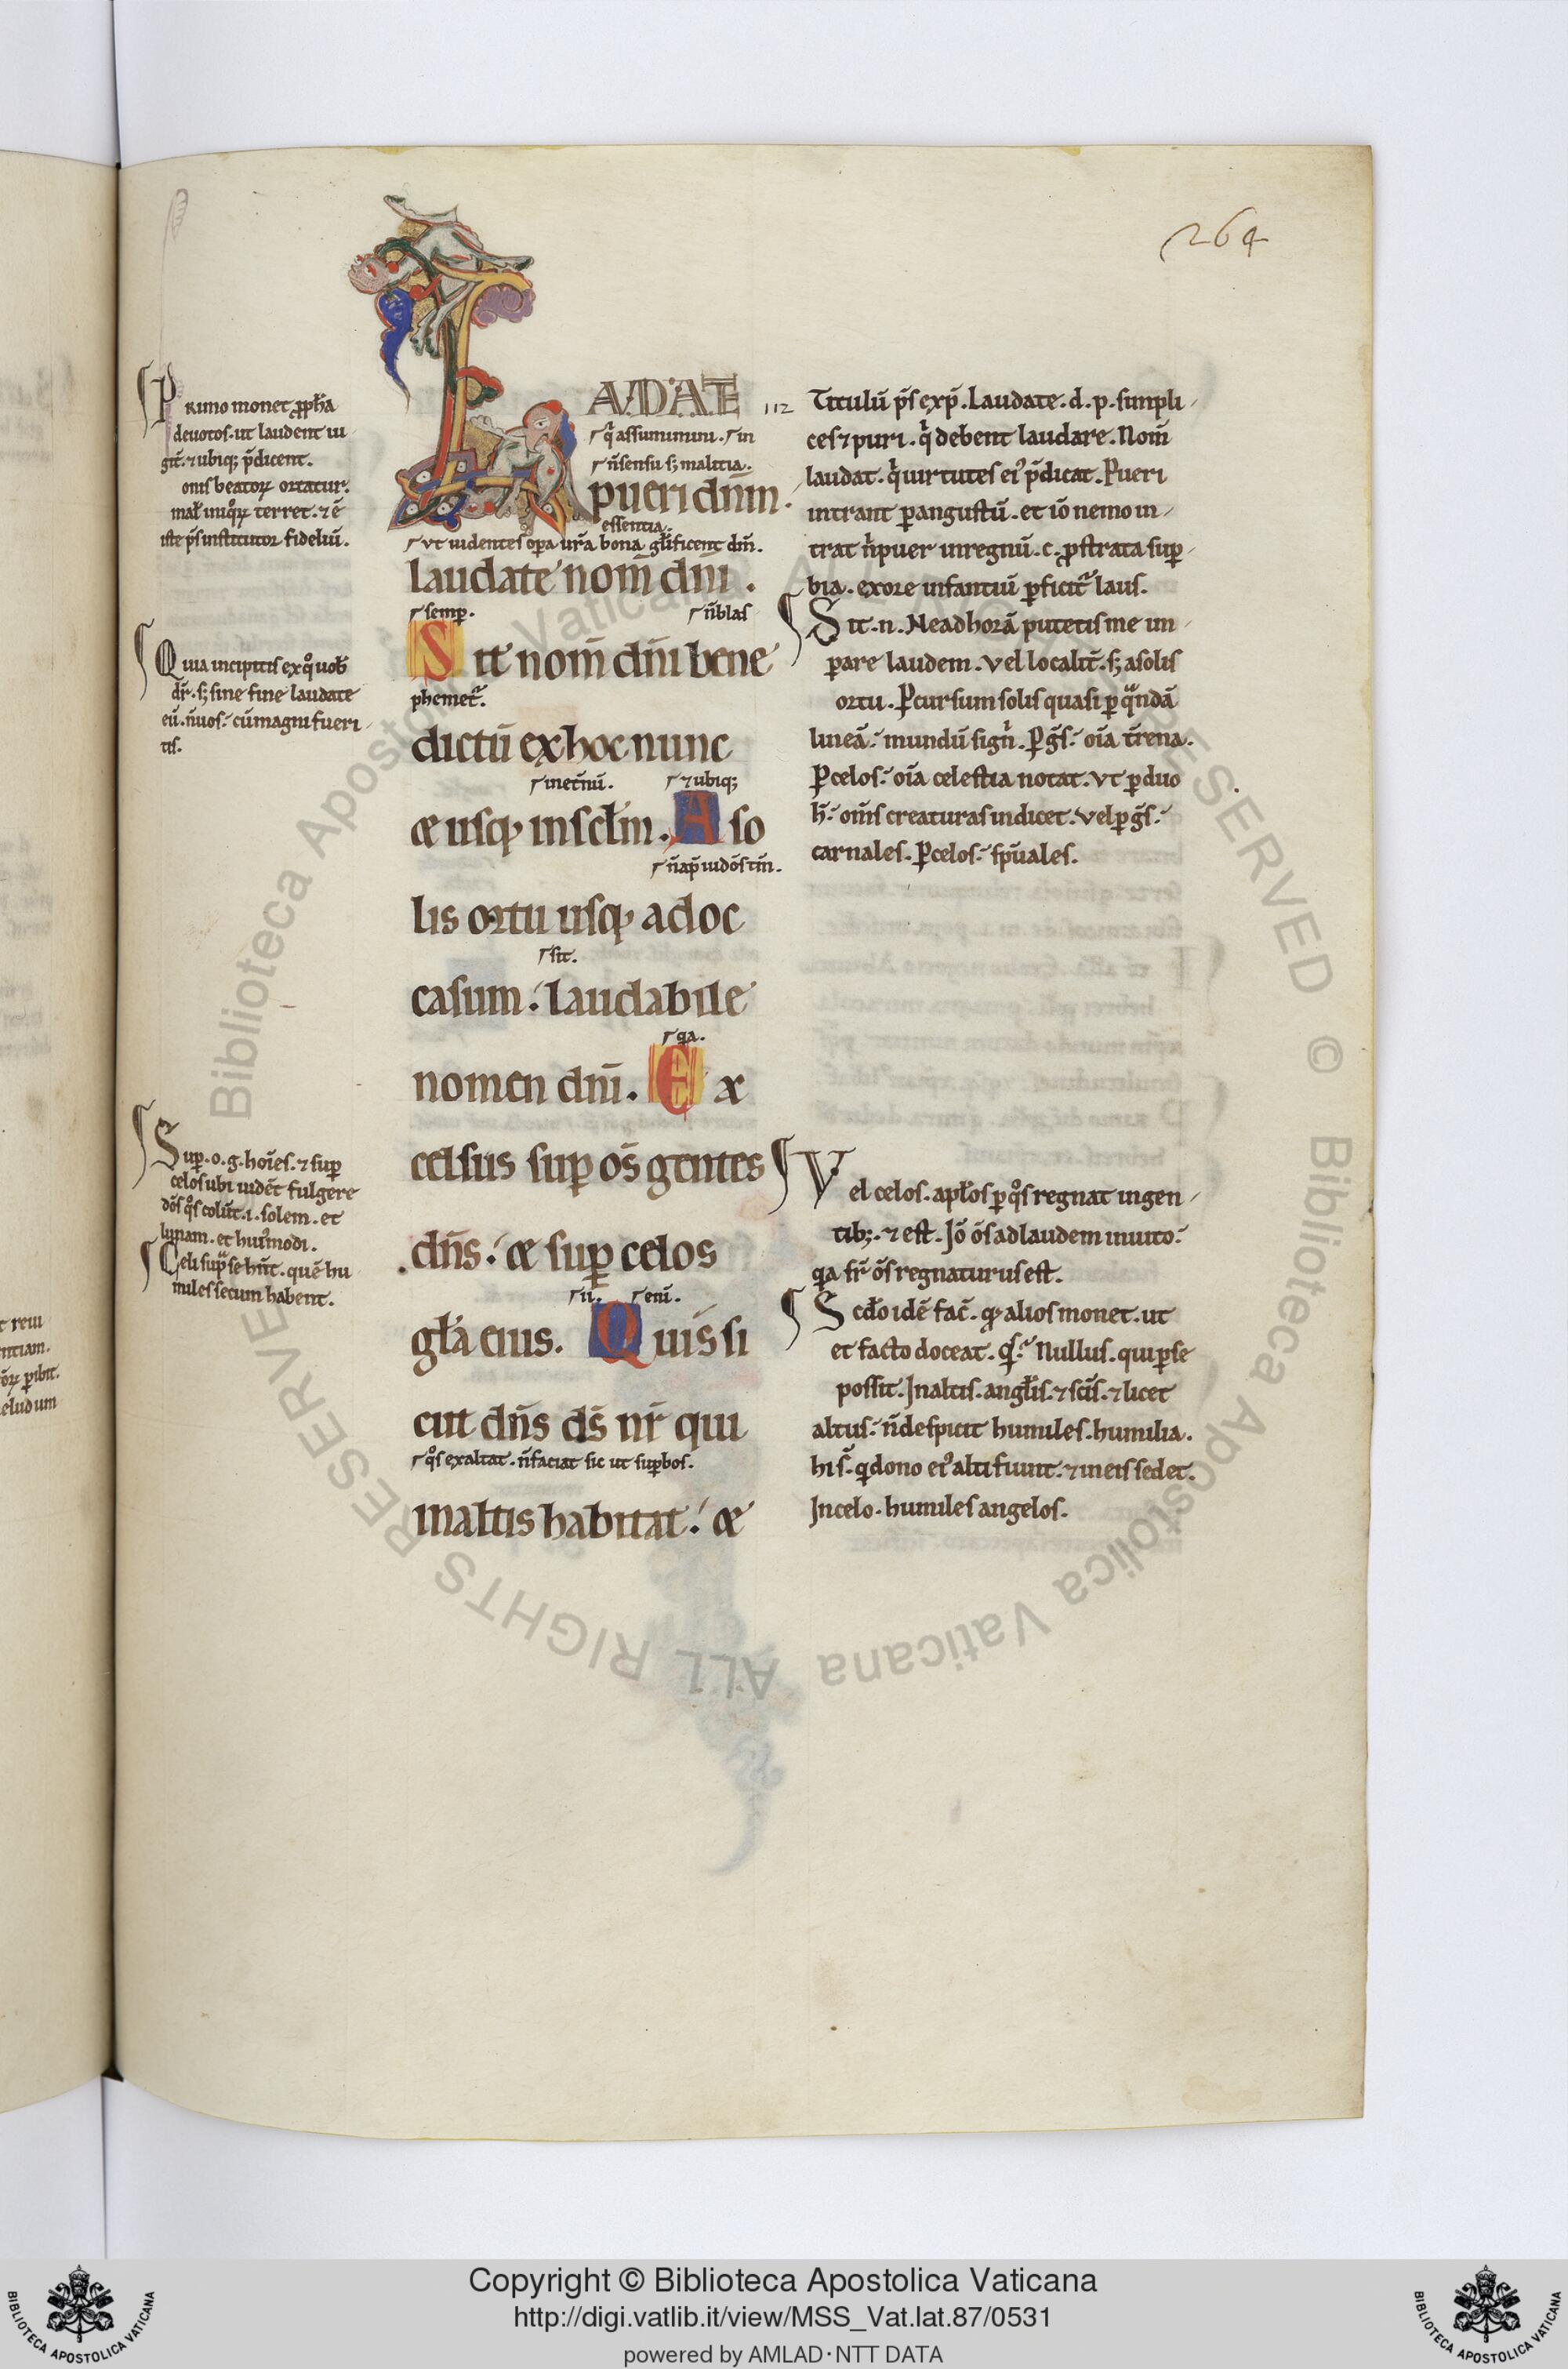 264
P rimo monet ꝓph̄a
deuotos. ut laudent iu
git̄. ⁊ ubiq; p̄dicent.
om̄s beatoꝝ ortatur.
iniq̊ꝝ terret. ⁊ ē
iste p̄s institutor fideliū.
Q uia incipitis ex q̊ uob̄
dr̄. s; sine fine laudate
eū. n̄ uos. cū magni fueri
tis.
S uꝑ. o. g. hoīes. ⁊ suꝑ
celos ubi uidēt fulgere
d̄os q̊s colūt. i. solem. et
lunam. et hui᷒modi.
C eli supͣ se hn̄t. quē hu
miles secum habent.
LAUDATE 112
⸢ qͥ assumimini. ⸢ in
⸢ n̄ sensu s; malitia.
pueri dnm̄.
essentia.
⸢ ut uidentes oꝑa ur̄a bona gl̄ificent dm̄.
laudate nom̄ dnī.
⸢ semꝑ. ⸢ n̄ blas
Sit nom̄ dnī bene
phemet᷑.
dictū ex hoc nunc
⸢ in et̄nū. ⸢ ⁊ ubiq;
& usq; in scl̄m. A so
⸢ n̄ ap̄ iudōs tm̄.
lis ortu usq; ad oc
⸢ sit.
casum. laudabile
⸢ qa.
nomen dnī. Ex
celsus suꝑ os̄ gentes
dn̄s. & suꝑ celos
⸢ eni.
gl̄a eius. Quis si
cut dn̄s ds̄ nr̄ qui
⸢ q̊s exaltat. n̄ faciat sic ut suꝑbos.
in altis habitat. &
Titulū p̄s exp̄. Laudate. d. p. simpli
ces ⁊ puri. qͥ debent laudare. Nom̄
laudat. qͥ uirtutes ei᷒ p̄dicat. Pueri
intrant ꝑ angustū. et iō nemo in
trat n̄ puer in regnū. c. ꝓstrata suꝑ
bia. ex ore infantiū ꝑficit᷑ laus.
S it. n. Ne ad horā putetis me im
ꝑare laudem. Vel localit̄. s; a solis
ortu. Ꝑ cursum solis quasi ꝑ qͣndā
lineā. mundū sign̄. Ꝑ gs̄. oīa t̄rena.
Ꝑ celos. oīa celestia notat. Vt ꝑ duo
h̄. om̄s creaturas indicet. Vel ꝑ gs̄.
carnales. Ꝑ celos. sp̄uales.
V el celos. apl̄os ꝑ q̊s regnat in gen
tib;. ⁊ est. Iō ōs ad laudem inuito.
qa sr̄ ōs regnaturus est.
S cd̄o idē fac̄. qꝫ alios monet. ut
et facto doceat. Nullus. qui ꝑ se
possit. In altis. angl̄is. ⁊ scīs. ⁊ licet
altus. n̄ despicit humiles. humilia.
his. q dono ei᷒ alti fiunt. ⁊ in eis sedet.
In celo. humiles angelos.
Copyright © Biblioteca Apostolica Vaticana
http://digi.vatlib.it/view/MSS_Vat.lat.87/0531
powered by AMLAD·NTT DATA
BIBLIOTECA APOSTOLICA VATICANA
BIBLIOTECA APOSTOLICA VATICANA
Biblioteca Apostolica Vaticana ALL RIGHTS RESERVED © Biblioteca Apostolica Vaticana ALL RIGHTS RESERVED